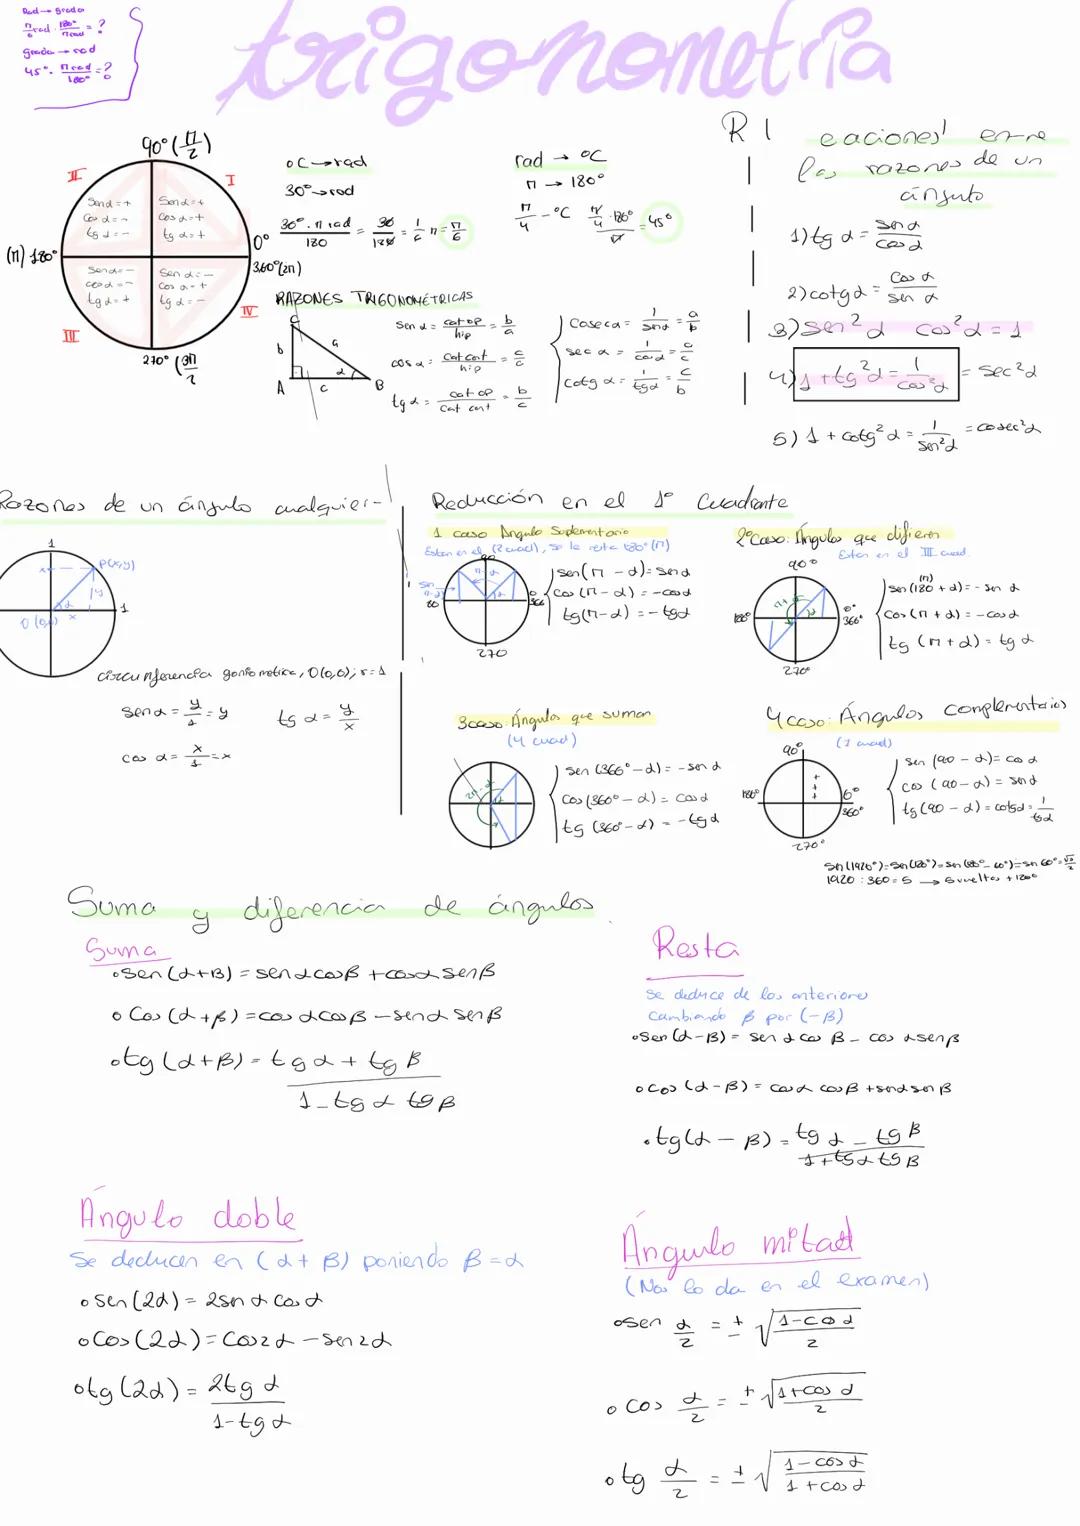 Rad → grados
π/6 rad · 180°/π rad = ?
grados → rad
45° · π rad/180° = ?
trigonometría
90° (π/2)
II
I
Sen α = +
Cos α = -
tg α = -
Sen α = +
Cos α = +
tg α = +
(π) 180°
0°
360° (2π)
Sen α = -
cos α = -
tg α = +
Sen α = -
cos α = +
tg α = -
III
IV
270° (3π/2
°C → rad
30° → rad
30° · π rad/180 = 30/180 = 1/6 π = π/6
rad → °C
π → 180°
π/4 - °C π/4 · 180°/π = 45°
RAZONES TRIGONOMÉTRICAS
C
b
a
A
c
α
B
Sen α = cat op/hip = b/a
cos α = cat cont/hip = c/a
tg α = cat op/cat cont = b/c
Coseca = 1/sin α = a/b
sec α = 1/cos α = a/c
Cotg α = 1/tg α = c/b
R I eaciones entre
las razones de un
ángulo
1) tg α = sen α/cos α
2) cotg α = cos α/sen α
3) sen² α cos² α = 1
4) 1 + tg² α = 1/cos² α = sec² α
5) 1 + cotg² α = 1/sen² α = cosec² α
Razones de un ángulo cualquier-
1
P(x,y)
y
α
x
0 (0,0)
1
circunferencia goniometrica, O(0,0); r = 1
sen α = y/1 = y
tg α = y/x
cos α = x/1 = x
Reducción en el 1º Cuadrante
1 caso Angulo Suplementario
Estan en el (2 cuad), se le resta 180° (π)
90
π - α
180
0
360
270
sen (π - α) = sen α
Cos (π - α) = -cos α
tg (π - α) = -tg α
2º Caso: Ángulos que difieren
Estan en el III cuad.
90°
π + α
180°
0°
360°
270°
sen (180 (π) + α) = - sen α
Cos (π + α) = -cos α
tg (π + α) = tg α
3 caso: Ángulos que suman
(4 cuad)
2π - α
sen (360° - α) = -sen α
Cos (360° - α) = Cos α
tg (360° - α) = -tg α
4 caso: Ángulos complementarios
(1 cuad)
90°
180°
0°
360°
270°
sen (90 - α) = cos α
cos (90 - α) = sen α
tg (90 - α) = cotg α = 1/tg α
Sen (1920°) = Sen (120°) = Sen (180° - 60°) = sen 60° = √3/2
1920 : 360 = 5 → 5 vueltas + 120°
Suma y diferencia de ángulos
Suma
• Sen (α + β) = sen α cos β + cos α sen β
• Cos (α + β) = cos α cos β - sen α sen β
• tg (α + β) = tg α + tg β/1 - tg α tg β
Resta
Se deduce de los anteriores
cambiando β por (-β)
• Sen (α - β) = sen α cos β - cos α sen β
• cos (α - β) = cos α cos β + sen α sen β
• tg (α - β) = tg α - tg β/1 + tg α tg β
Ángulo doble
Se deducen en (α + β) poniendo β = α
• Sen (2α) = 2 sen α Cos α
• Cos (2α) = Cos2 α - sen2 α
• tg (2α) = 2 tg α/1 - tg α
Ángulo mitad
(Nos lo da en el examen)
• sen α/2 = ± √1 - cos α/2
• cos α/2 = ± √1 + cos α/2
• tg α/2 = ± √1 - cos α/1 + cos α